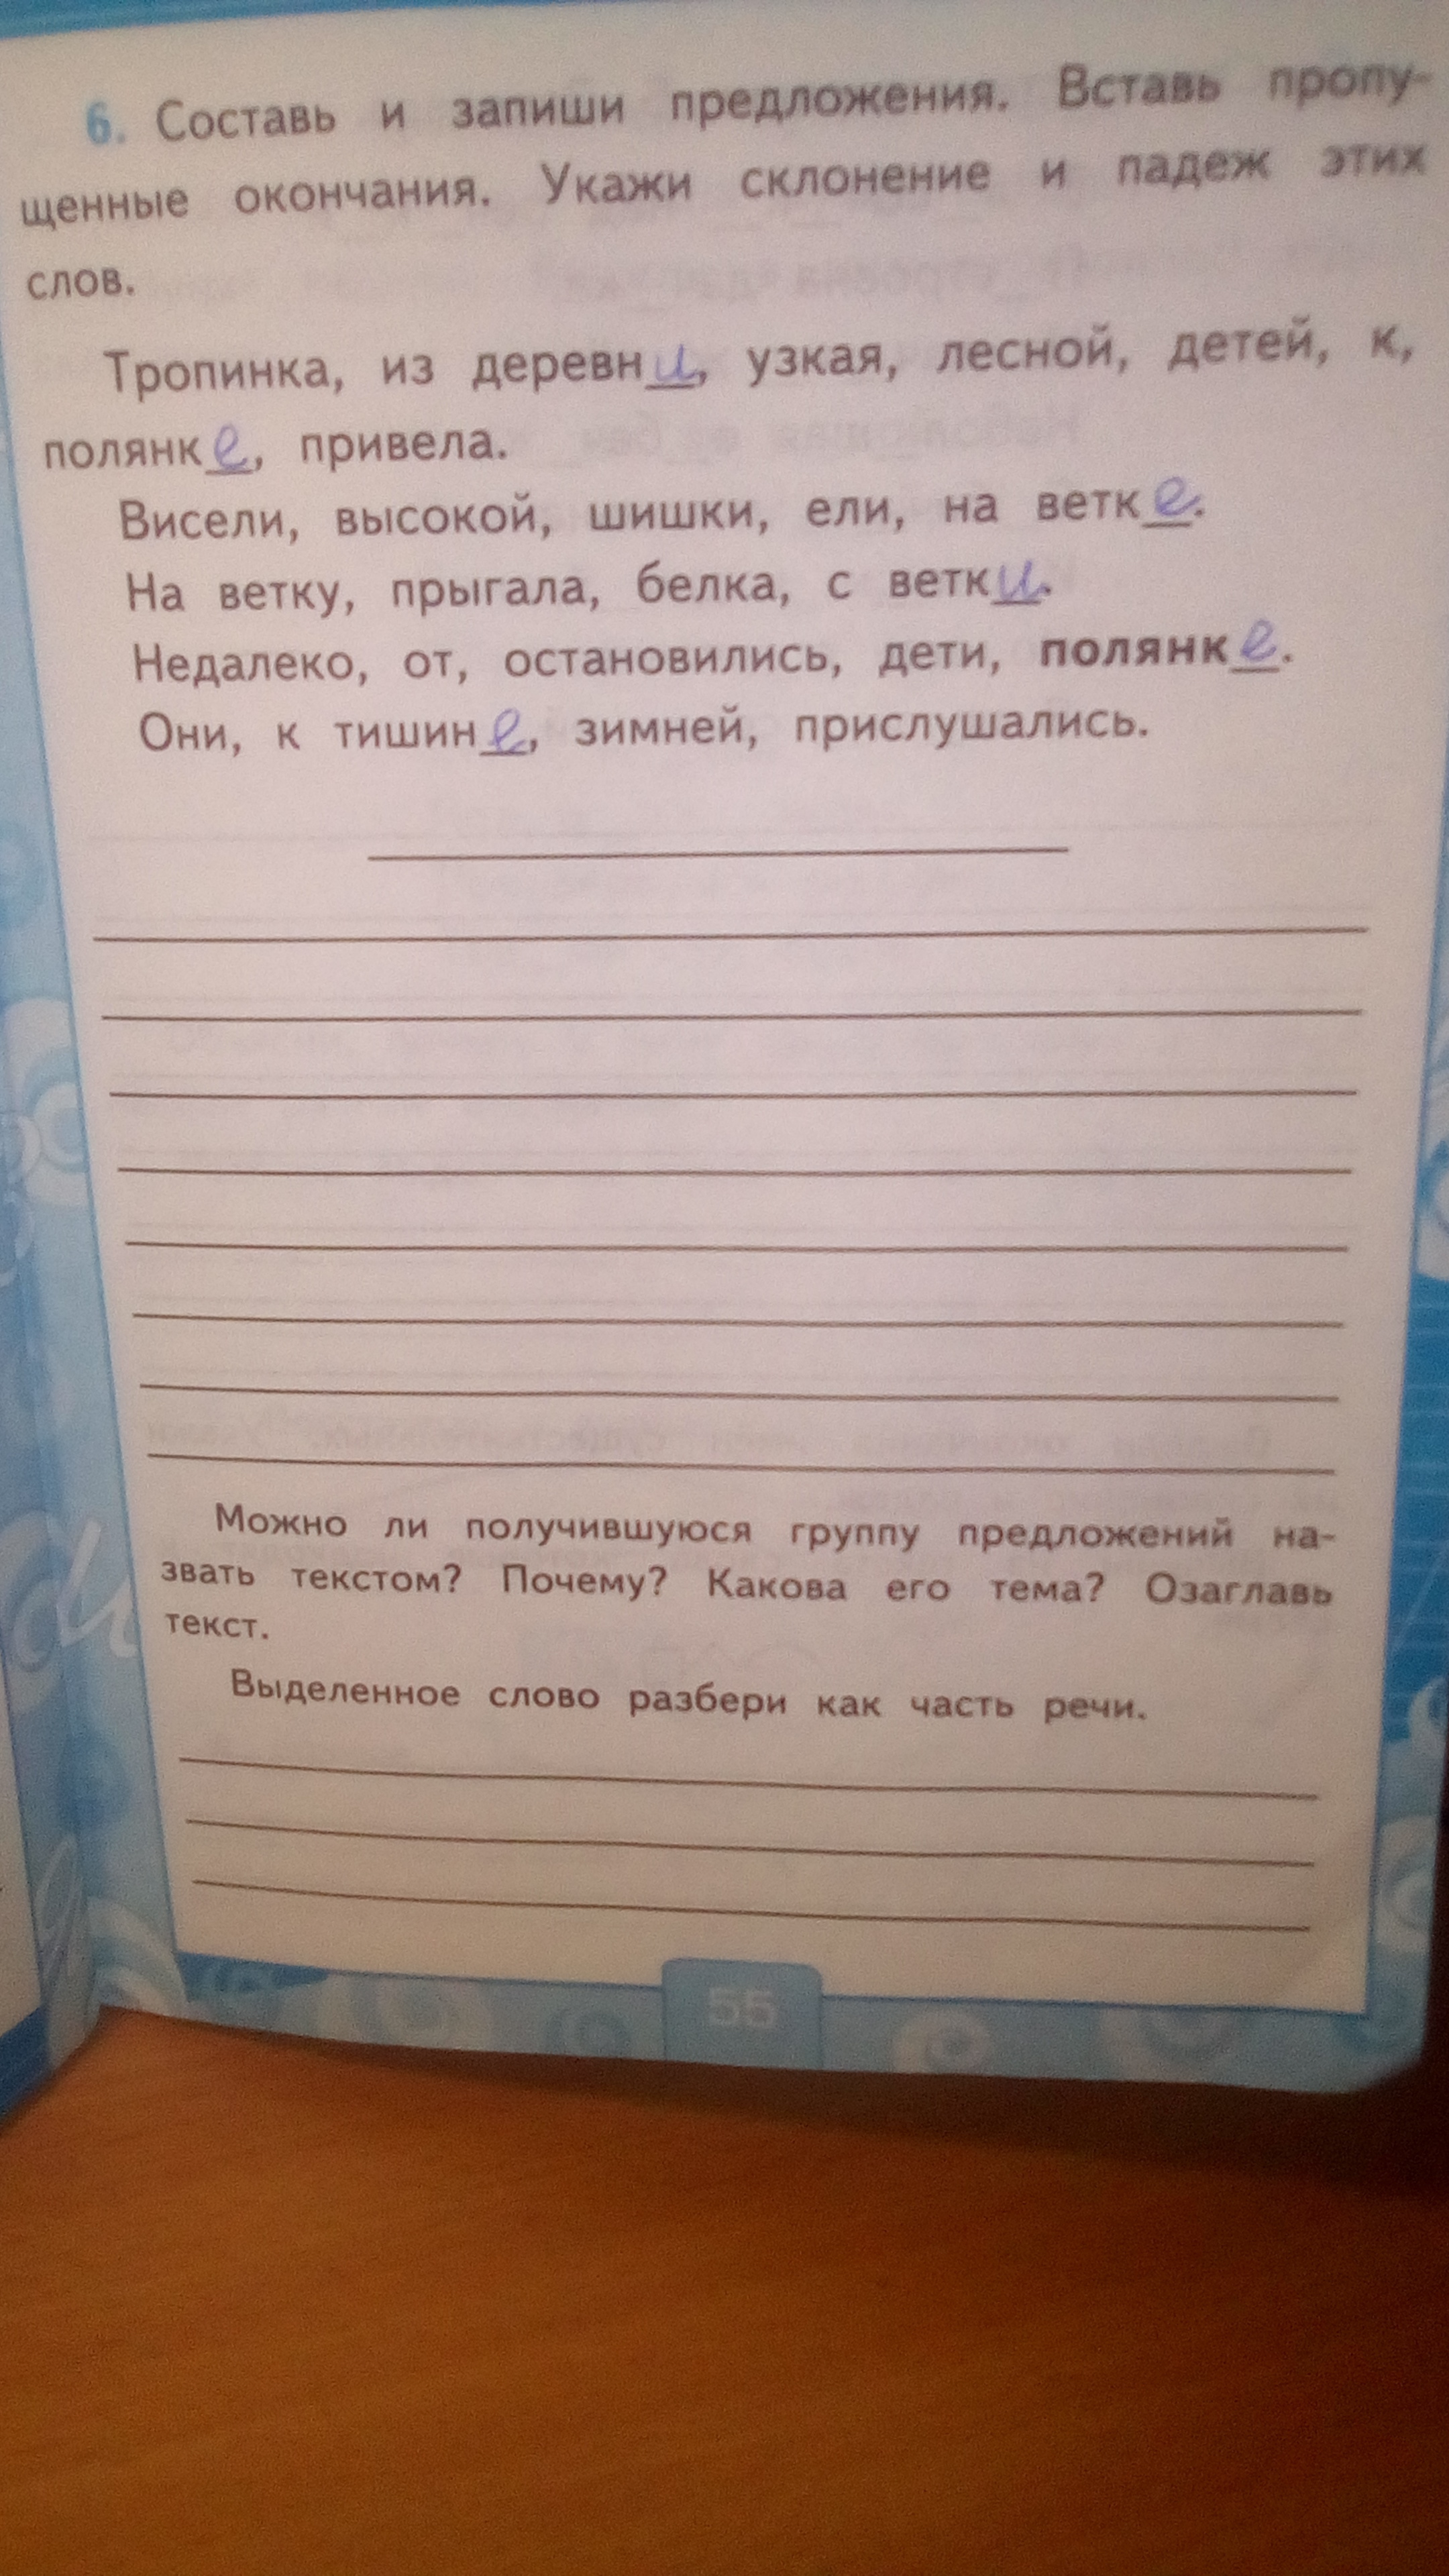 6. Составь и запиши предложения. Вставь пропу-
щенные окончания. Укажи склонение и падеж этих
слов.
Тропинка, из деревни, узкая, лесной, детей, к,
полянке, привела.
Висели, высокой, шишки, ели, на ветке.
На ветку, прыгала, белка, с ветки.
Недалеко, от, остановились, дети, полянке.
Они, к тишине, зимней, прислушались.
Можно ли получившуюся группу предложений на-
звать текстом? Почему? Какова его тема? Озаглавь
текст.
Выделенное слово разбери как часть речи.
55